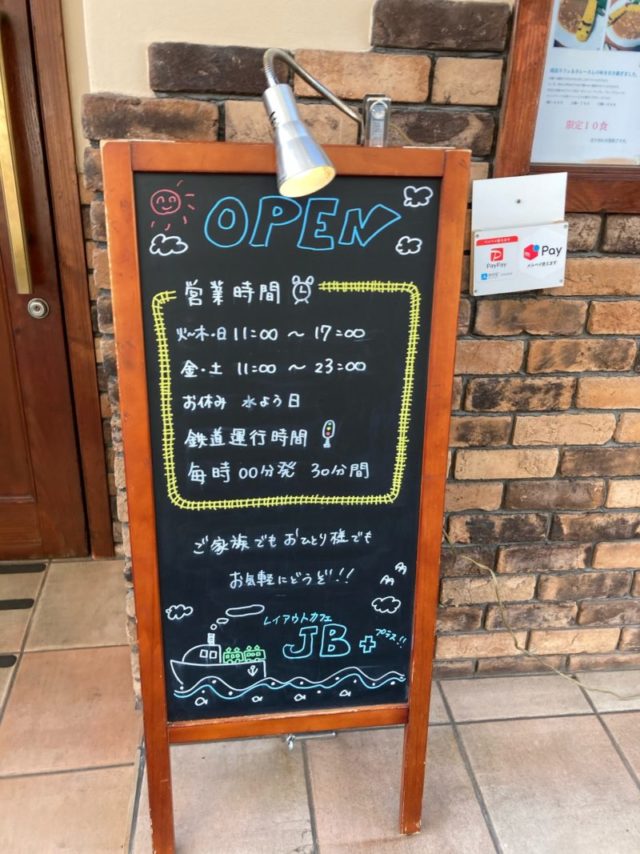 OPEN
営業時間
火~木・日 11:00 ～ 17:00
金・土 11:00 ～ 23:00
お休み 水よう日
鉄道運行時間
毎時 00分発 30分間
ご家族でも おひとり様でも
お気軽にどうぞ!!
レイアウトカフェ
JB+ プラス!!
PayPay
Pay
メルペイ使えます
限定10食